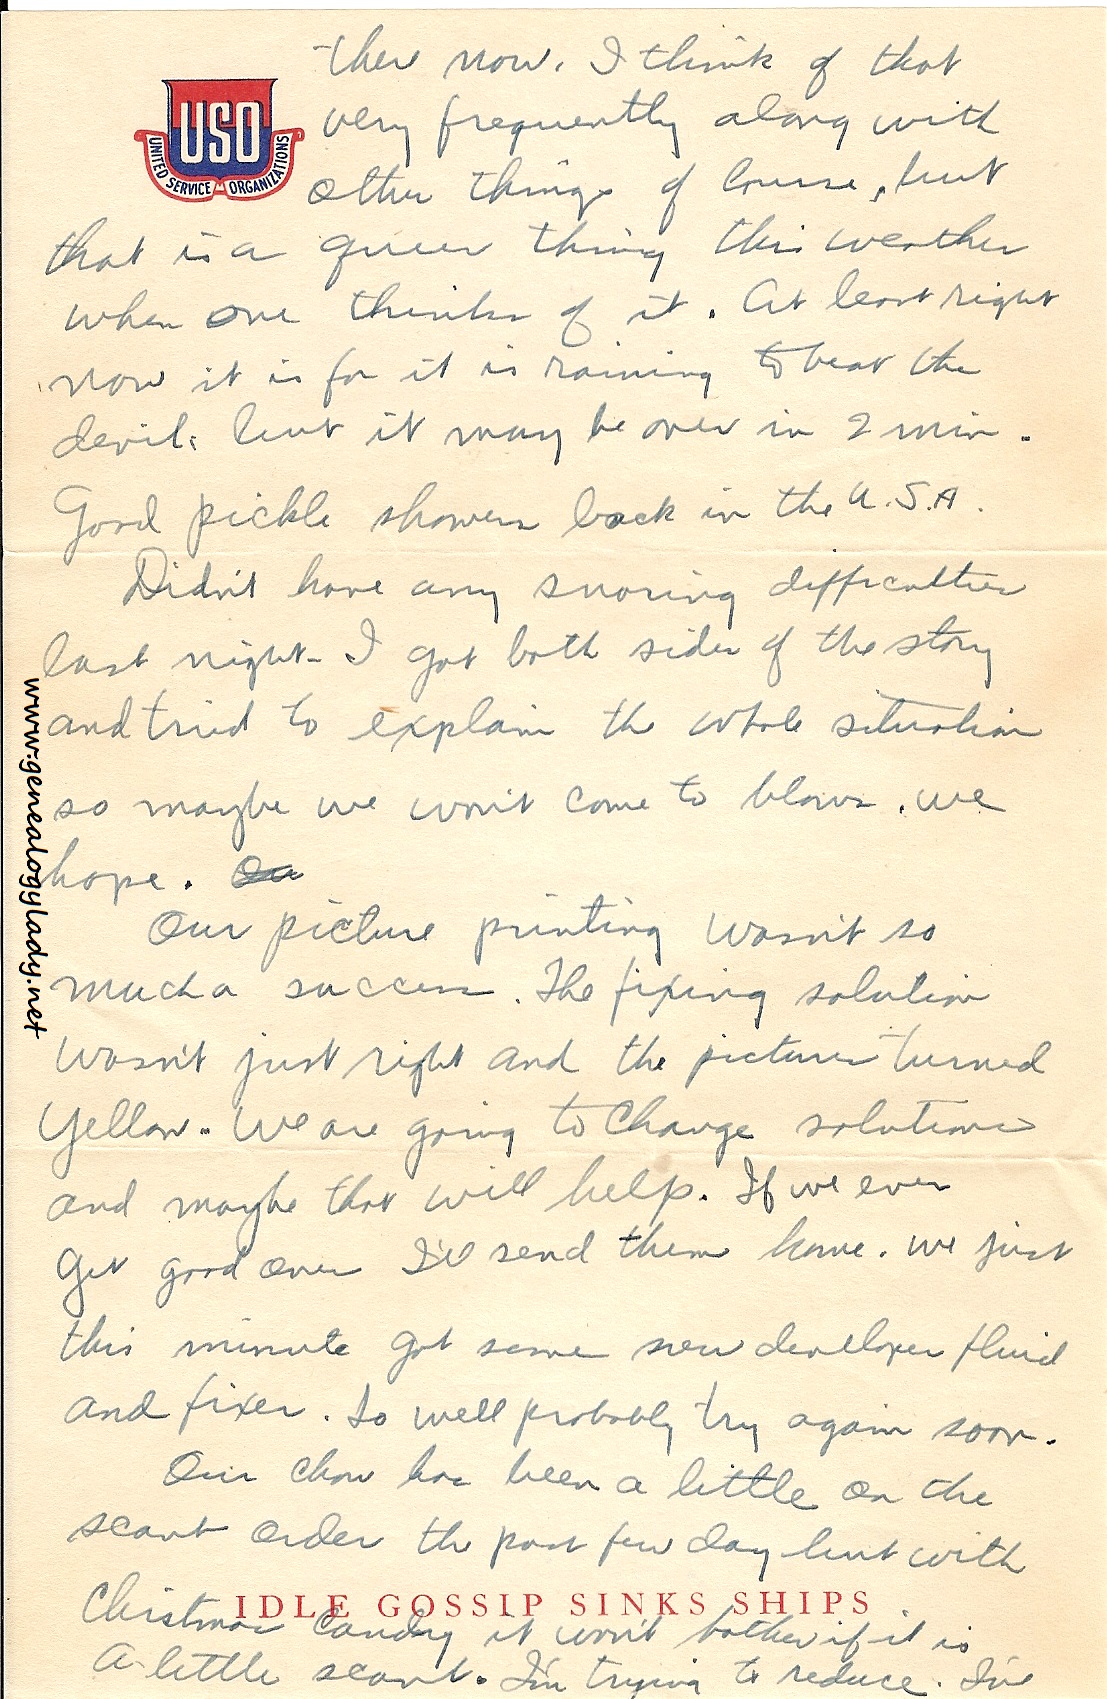 there now. I think of that
USO
UNITED SERVICE ORGANIZATIONS
very frequently along with
other things of course, but
that is a queer thing this weather
when one thinks of it. At least right
now it is for it is raining to beat the
devil, but it may be over in 2 min.
Good pickle showers back in the U.S.A.
Didn't have any snoring difficulties
last night - I got both sides of the story
and tried to explain the whole situation
so maybe we won't come to blows. we
hope.
Our picture printing wasn't so
much a success. The fixing solution
wasn't just right and the pictures turned
Yellow. We are going to change solutions
and maybe that will help. If we ever
get good ones I'll send them home. We just
this minute got some new developer fluid
and fixer. So well probably try again soon.
Our chow has been a little on the
scant order the past few day but with
Christmas candy it won't bother if it is
IDLE GOSSIP SINKS SHIPS
a little scant. I'm trying to reduce. I've
www.genealogylady.net